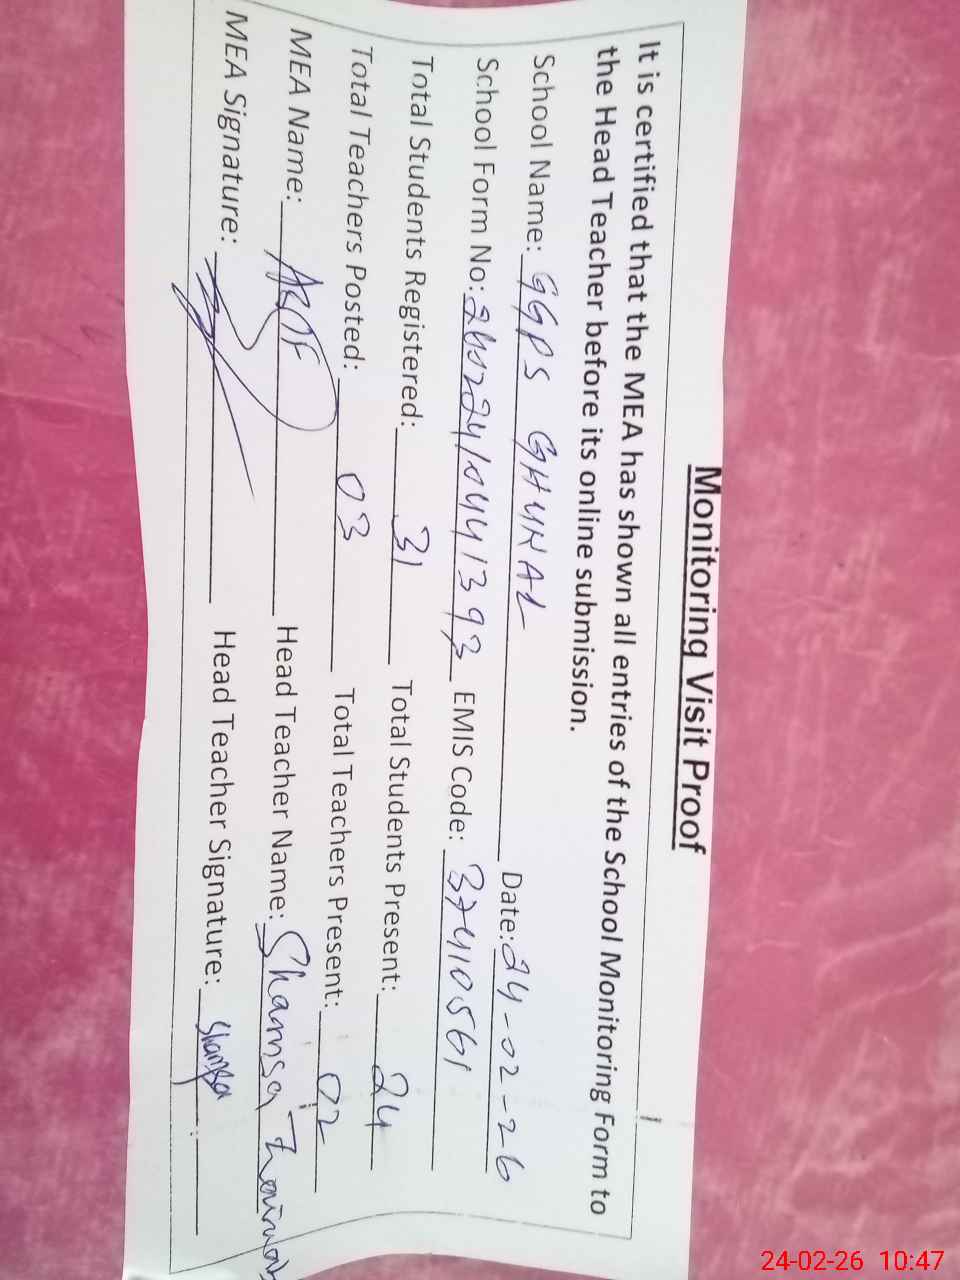 Monitoring Visit Proof
It is certified that the MEA has shown all entries of the School Monitoring Form to
the Head Teacher before its online submission.
School Name: GGPS GHUNAL Date: 24-02-26
School Form No: EMIS Code: 37410561
Total Students Registered: 31 Total Students Present: 24
Total Teachers Posted: 03 Total Teachers Present: 02
MEA Name: Head Teacher Name: Shamsa
MEA Signature: Head Teacher Signature: Shamsa
24-02-26 10:47